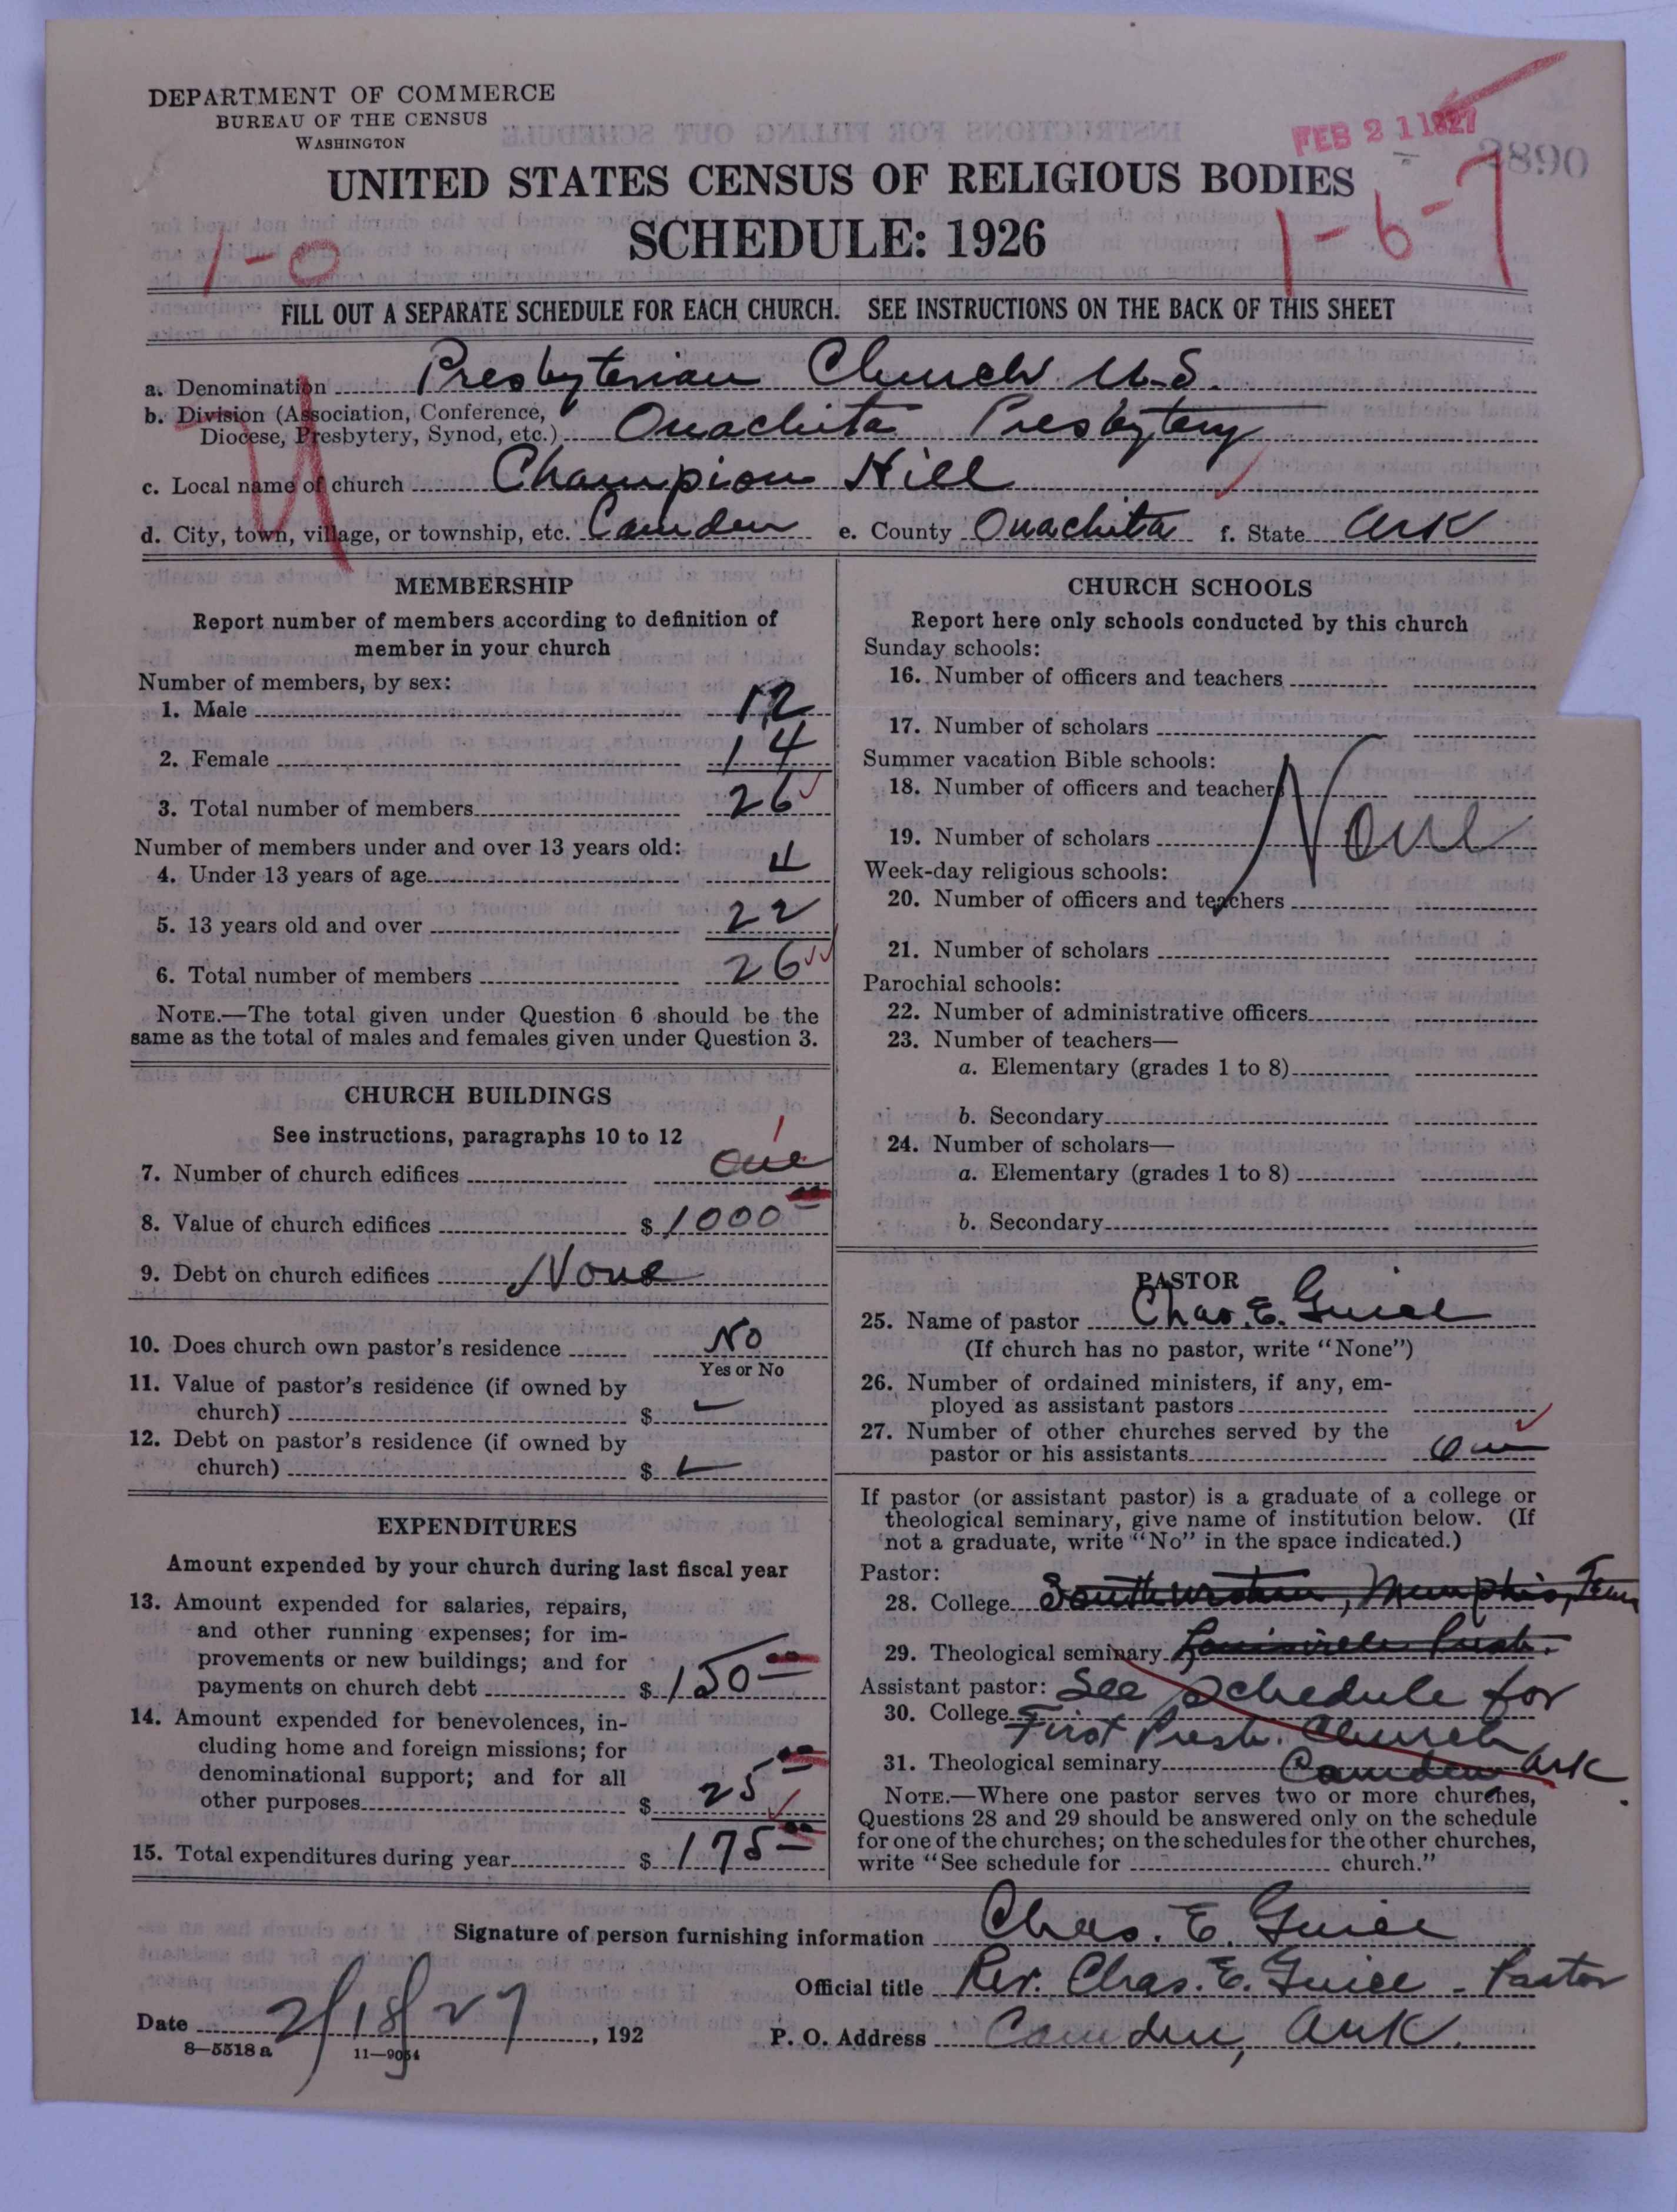 DEPARTMENT OF COMMERCE
BUREAU OF THE CENSUS
WASHINGTON
FEB 21 1927
2890
UNITED STATES CENSUS OF RELIGIOUS BODIES
SCHEDULE: 1926
1-0
1-6-7
FILL OUT A SEPARATE SCHEDULE FOR EACH CHURCH. SEE INSTRUCTIONS ON THE BACK OF THIS SHEET
a. Denomination Presbyterian Church U.S.
b. Division (Association, Conference,
Diocese, Presbytery, Synod, etc.) Ouachita Presbytery
c. Local name of church Champion Hill
d. City, town, village, or township, etc. Camden e. County Ouachita f. State Ark
MEMBERSHIP
Report number of members according to definition of
member in your church
Number of members, by sex:
1. Male 12
2. Female 14
3. Total number of members 26
Number of members under and over 13 years old:
4. Under 13 years of age 4
5. 13 years old and over 22
6. Total number of members 26
NOTE.—The total given under Question 6 should be the
same as the total of males and females given under Question 3.
CHURCH BUILDINGS
See instructions, paragraphs 10 to 12
1
7. Number of church edifices One
8. Value of church edifices $ 1000 00
9. Debt on church edifices None
10. Does church own pastor's residence No
Yes or No
11. Value of pastor's residence (if owned by
church) $
12. Debt on pastor's residence (if owned by
church) $
EXPENDITURES
Amount expended by your church during last fiscal year
13. Amount expended for salaries, repairs,
and other running expenses; for im-
provements or new buildings; and for
payments on church debt $ 150 00
14. Amount expended for benevolences, in-
cluding home and foreign missions; for
denominational support; and for all
other purposes $ 25 00
15. Total expenditures during year $ 175 00
CHURCH SCHOOLS
Report here only schools conducted by this church
Sunday schools:
16. Number of officers and teachers
17. Number of scholars
Summer vacation Bible schools:
18. Number of officers and teachers
19. Number of scholars None
Week-day religious schools:
20. Number of officers and teachers
21. Number of scholars
Parochial schools:
22. Number of administrative officers
23. Number of teachers—
a. Elementary (grades 1 to 8)
b. Secondary
24. Number of scholars—
a. Elementary (grades 1 to 8)
b. Secondary
PASTOR
25. Name of pastor Chas. E. Guice
(If church has no pastor, write "None")
26. Number of ordained ministers, if any, em-
ployed as assistant pastors
27. Number of other churches served by the
pastor or his assistants
If pastor (or assistant pastor) is a graduate of a college or
theological seminary, give name of institution below. (If
not a graduate, write "No" in the space indicated.)
Pastor:
28. College Southwestern, Memphis, Tenn
29. Theological seminary Louisville Presb.
Assistant pastor: See Schedule for
30. College First Presb. Church
31. Theological seminary Camden Ark
NOTE.—Where one pastor serves two or more churches,
Questions 28 and 29 should be answered only on the schedule
for one of the churches; on the schedules for the other churches,
write "See schedule for church."
Signature of person furnishing information Chas. E. Guice
Official title Rev. Chas. E. Guice - Pastor
Date 2/18/27, 192
P. O. Address Camden, Ark.
8—5518 a
11—9054